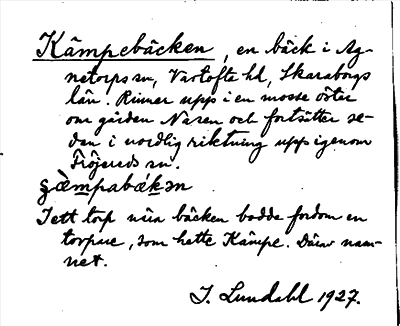 Kämpebäcken, en bäck i Ag-
netorps sn, Vartofta hd, Skaraborgs
län. Rinner upp i en mosse öster
om gården Näsen och fortsätter se-
dan i nordlig riktning upp igenom
Fröjereds sn.
I ett torp nära bäcken bodde fordom en
torpare, som hette Kämpe. Därav nam-
net.
I. Lundahl 1927.